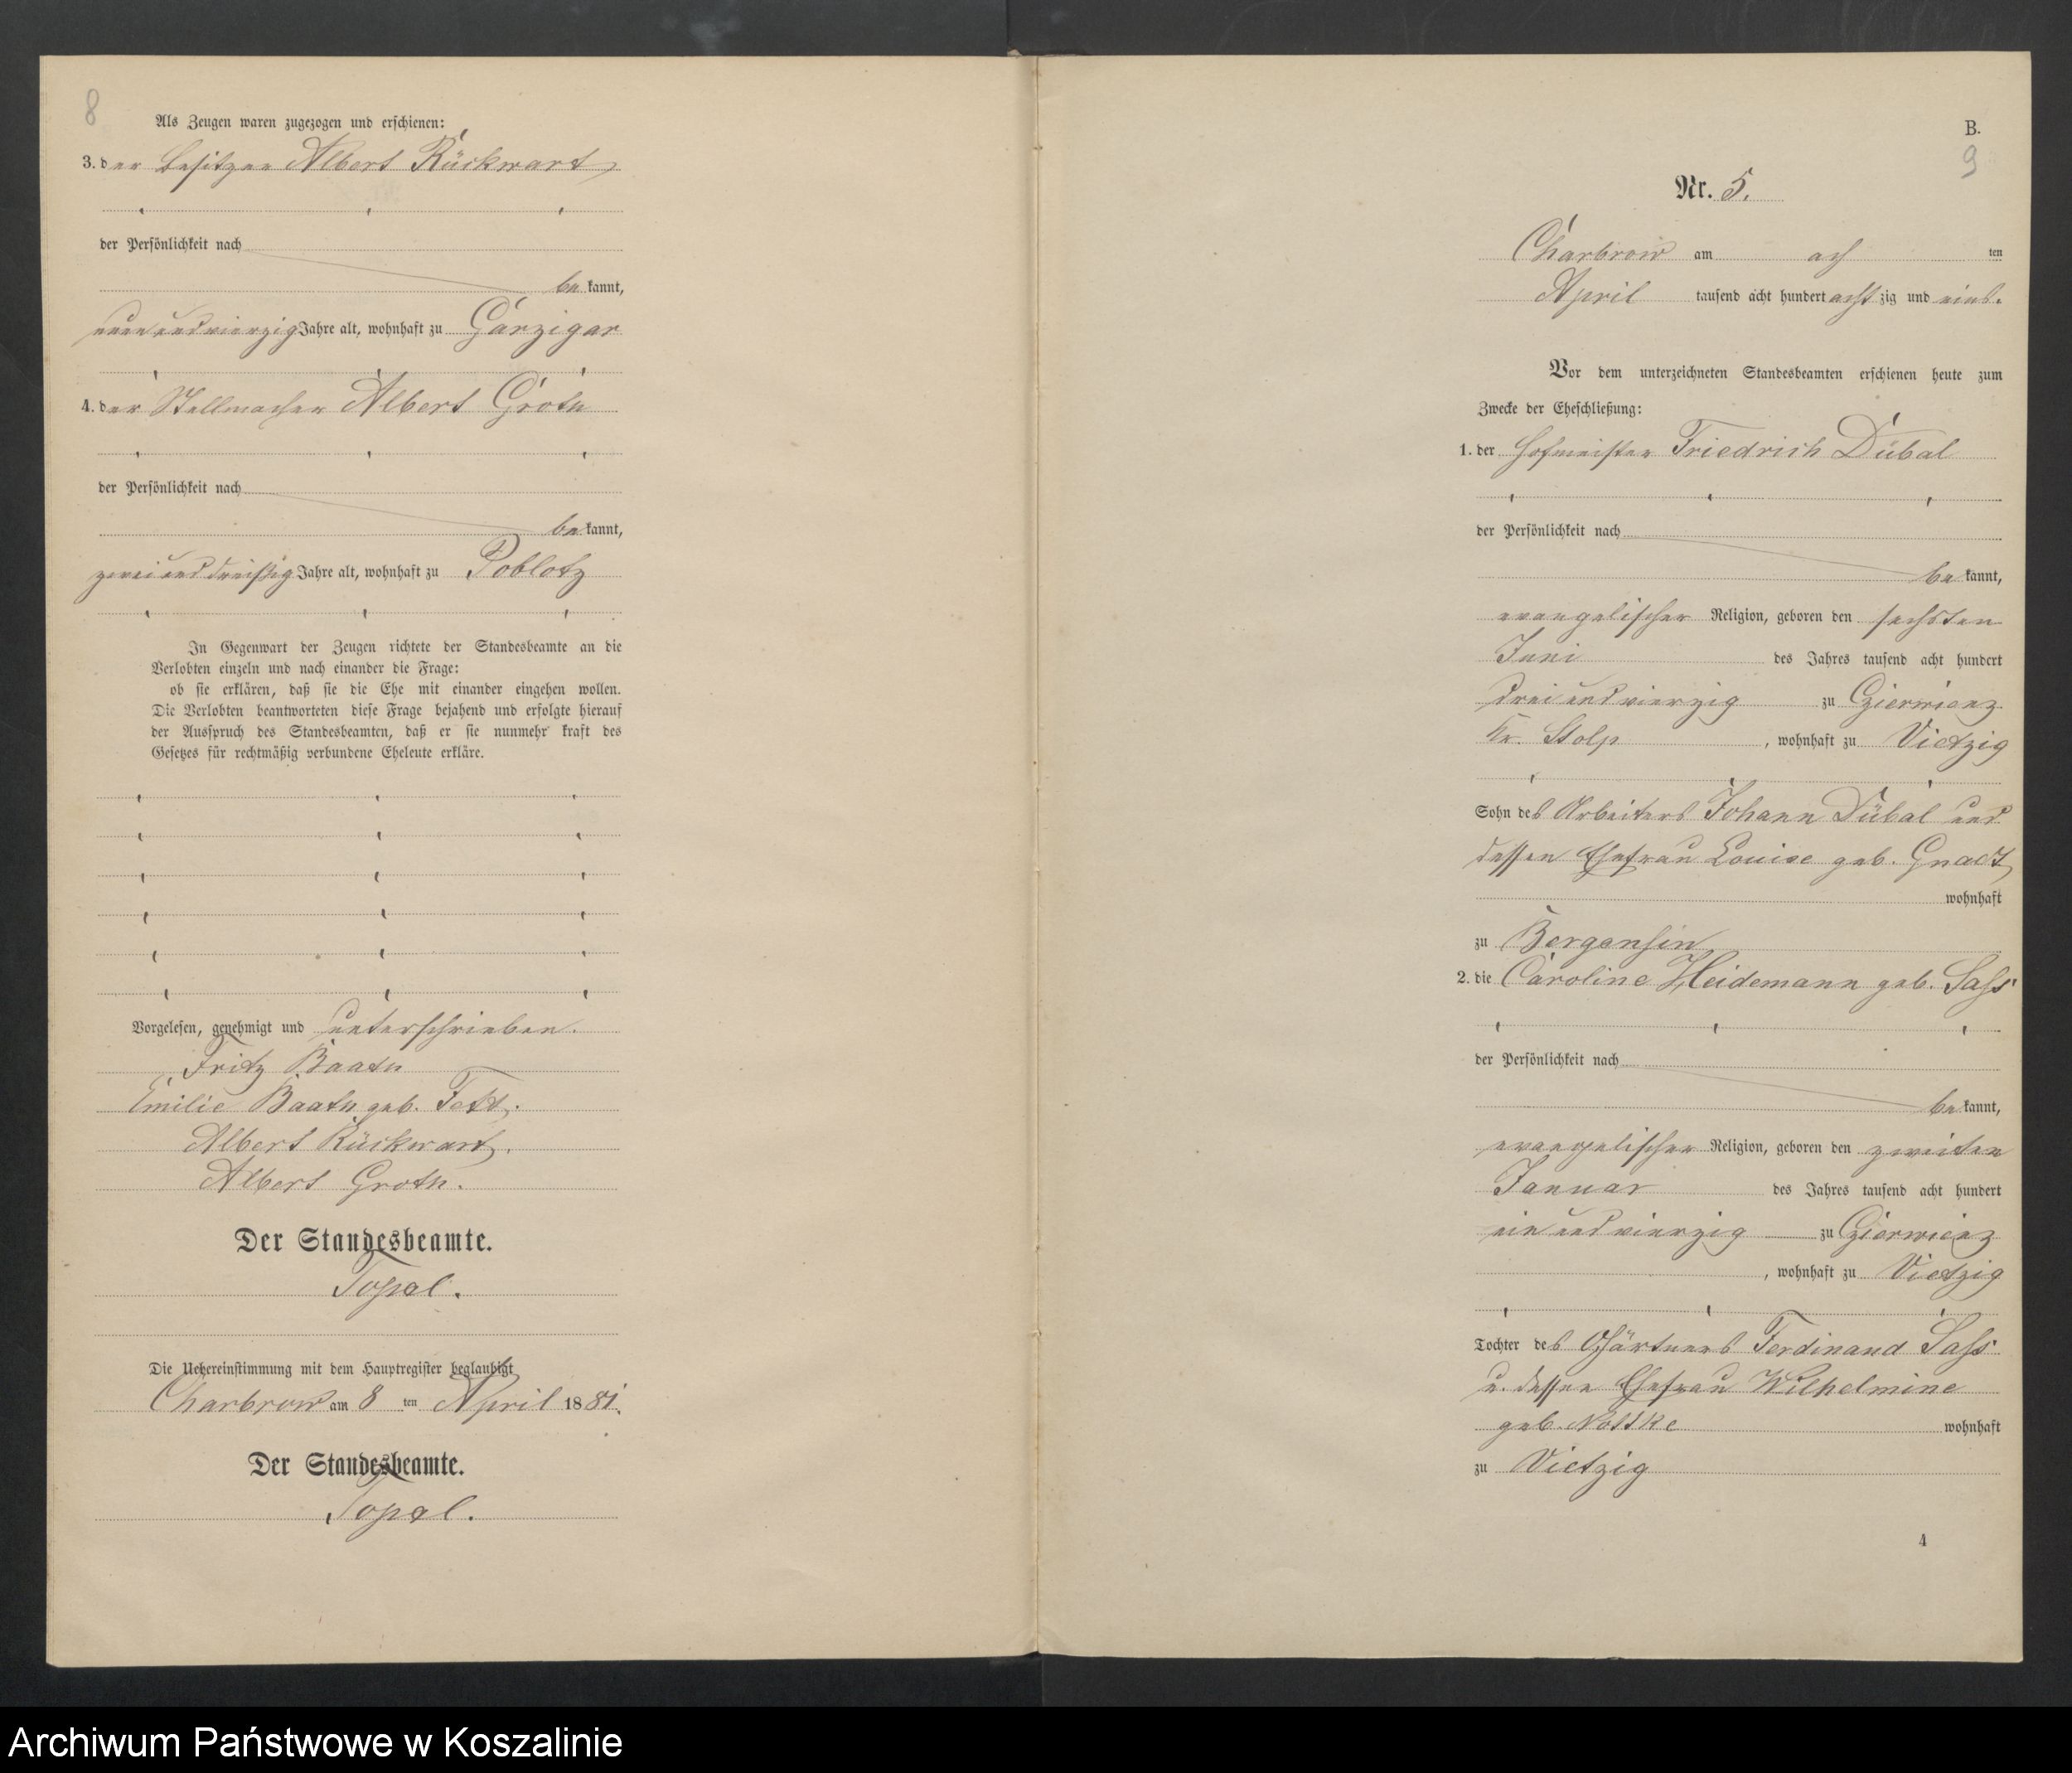 8
Als Zeugen waren zugezogen und erschienen:
3. der Besitzer Albert Rückwart
der Persönlichkeit nach
bekannt,
neunundvierzig Jahre alt, wohnhaft zu Garzigar
4. der Stellmacher Albert Groth
der Persönlichkeit nach
bekannt,
zweiunddreißig Jahre alt, wohnhaft zu Poblotz
In Gegenwart der Zeugen richtete der Standesbeamte an die
Verlobten einzeln und nach einander die Frage:
ob sie erklären, daß sie die Ehe mit einander eingehen wollen.
Die Verlobten beantworteten diese Frage bejahend und erfolgte hierauf
der Ausspruch des Standesbeamten, daß er sie nunmehr kraft des
Gesetzes für rechtmäßig verbundene Eheleute erkläre.
Vorgelesen, genehmigt und unterschrieben.
Fritz Baath
Emilie Baath geb. Tett.
Albert Rückwart.
Albert Groth.
Der Standesbeamte.
Topel.
Die Uebereinstimmung mit dem Hauptregister beglaubigt
Charbrow am 8 ten April 1881.
Der Standesbeamte.
Topel.
B.
9
Nr. 5.
Charbrow am ach ten
April tausend acht hundert achtzig und eins.
Vor dem unterzeichneten Standesbeamten erschienen heute zum
Zwecke der Eheschließung:
1. der Hofmeister Friedrich Dübal
der Persönlichkeit nach
bekannt,
evangelischer Religion, geboren den sechsten
Juni des Jahres tausend acht hundert
dreiundvierzig zu Czierwienz
Kr. Stolp, wohnhaft zu Vietzig
Sohn des Arbeiters Johann Dübal und
dessen Ehefrau Louise geb. Gnadt
wohnhaft
zu Bergensin
2. die Caroline Heidemann geb. Sass
der Persönlichkeit nach
bekannt,
evangelischer Religion, geboren den zweiten
Januar des Jahres tausend acht hundert
einundvierzig zu Czierwienz
, wohnhaft zu Vietzig
Tochter des Gärtners Ferdinand Sass
u. dessen Ehefrau Wilhelmine
geb. Nosske wohnhaft
zu Vietzig
4
Archiwum Państwowe w Koszalinie